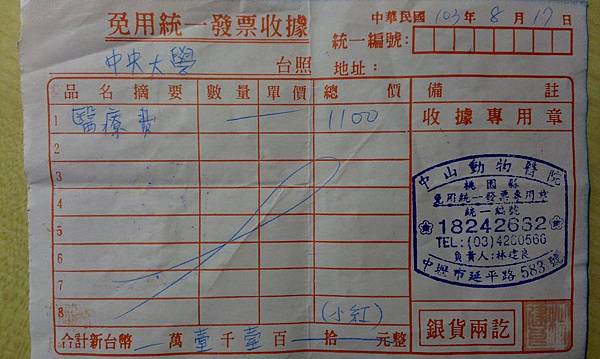 免用統一發票收據
中華民國 103 年 8 月 17 日
統一編號:
中央大學 台照
地址:
品名摘要 數量 單價 總價 備註
1 醫療費 1100
收據專用章
2
3
4
5
6
7
8 (小紅)
中山動物醫院
桃園縣
免用統一發票專用章
統一編號
18242662
TEL:(03)4260566
負責人:林建良
中興市延平路583號
合計新台幣 萬 壹 千 壹 百 拾 元整
銀貨兩訖